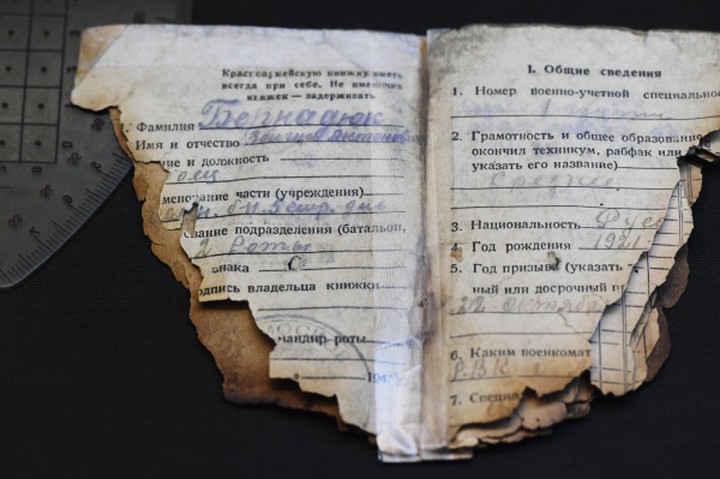 Красноармейскую книжку иметь
всегда при себе. Не имеющих
книжек — задерживать
Фамилия Бернадюк
Имя и отчество
ние и должность
менование части (учреждения)
вание подразделения (батальон,
2 Роты
знака
одпись владельца книжки
мандир роты
194
I. Общие сведения
1. Номер военно-учетной специальнос
2. Грамотность и общее образование
окончил техникум, рабфак или
указать его название)
Среднее
3. Национальность Рус
4 Год рождения 1921
5. Год призыва (указать
ный или досрочный пр
22 октября
6. Каким военкомат
РВК г.
7. Специа